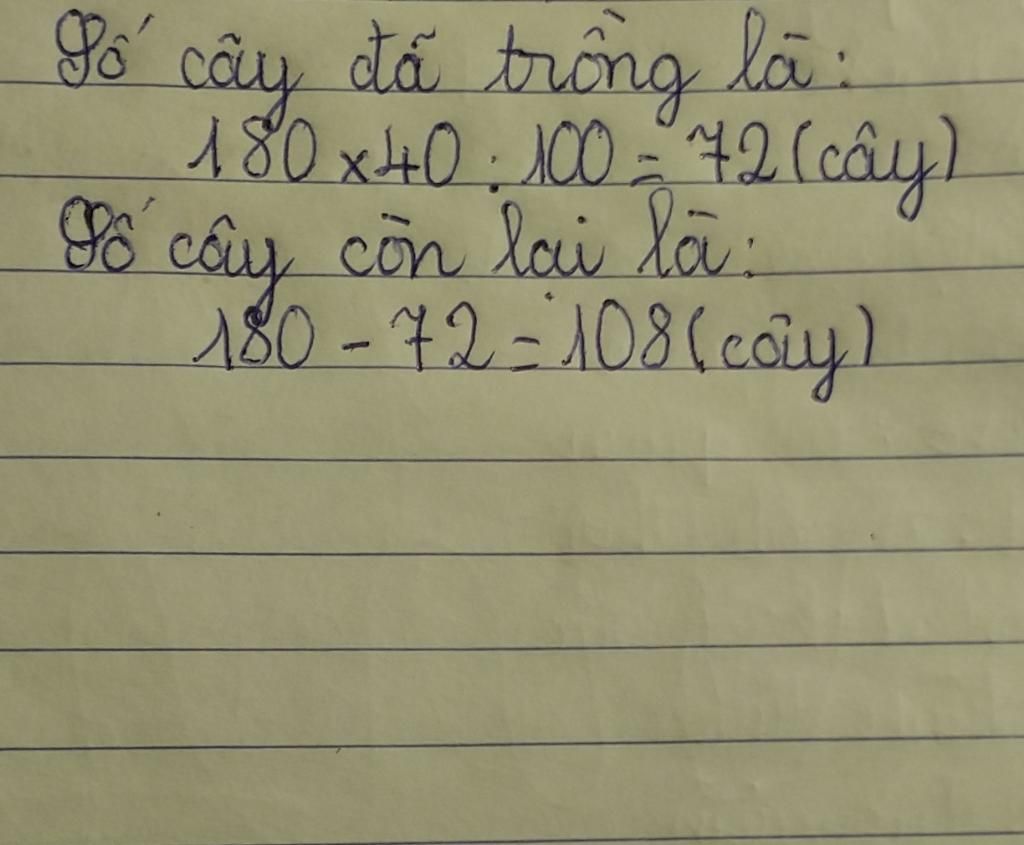 Số cây đã trồng là:
180 x 40 : 100 = 72 (cây)
Số cây còn lại là:
180 - 72 = 108 (cây)